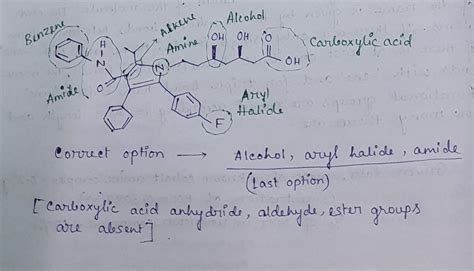 Benzene
H
N
Alkene
Amine
Alcohol
OH OH O
Carboxylic acid
N
OH
O
Amide
F
Aryl
Halide
Correct option → Alcohol, aryl halide, amide
(Last option)
[Carboxylic acid anhydride, aldehyde, ester groups
are absent]